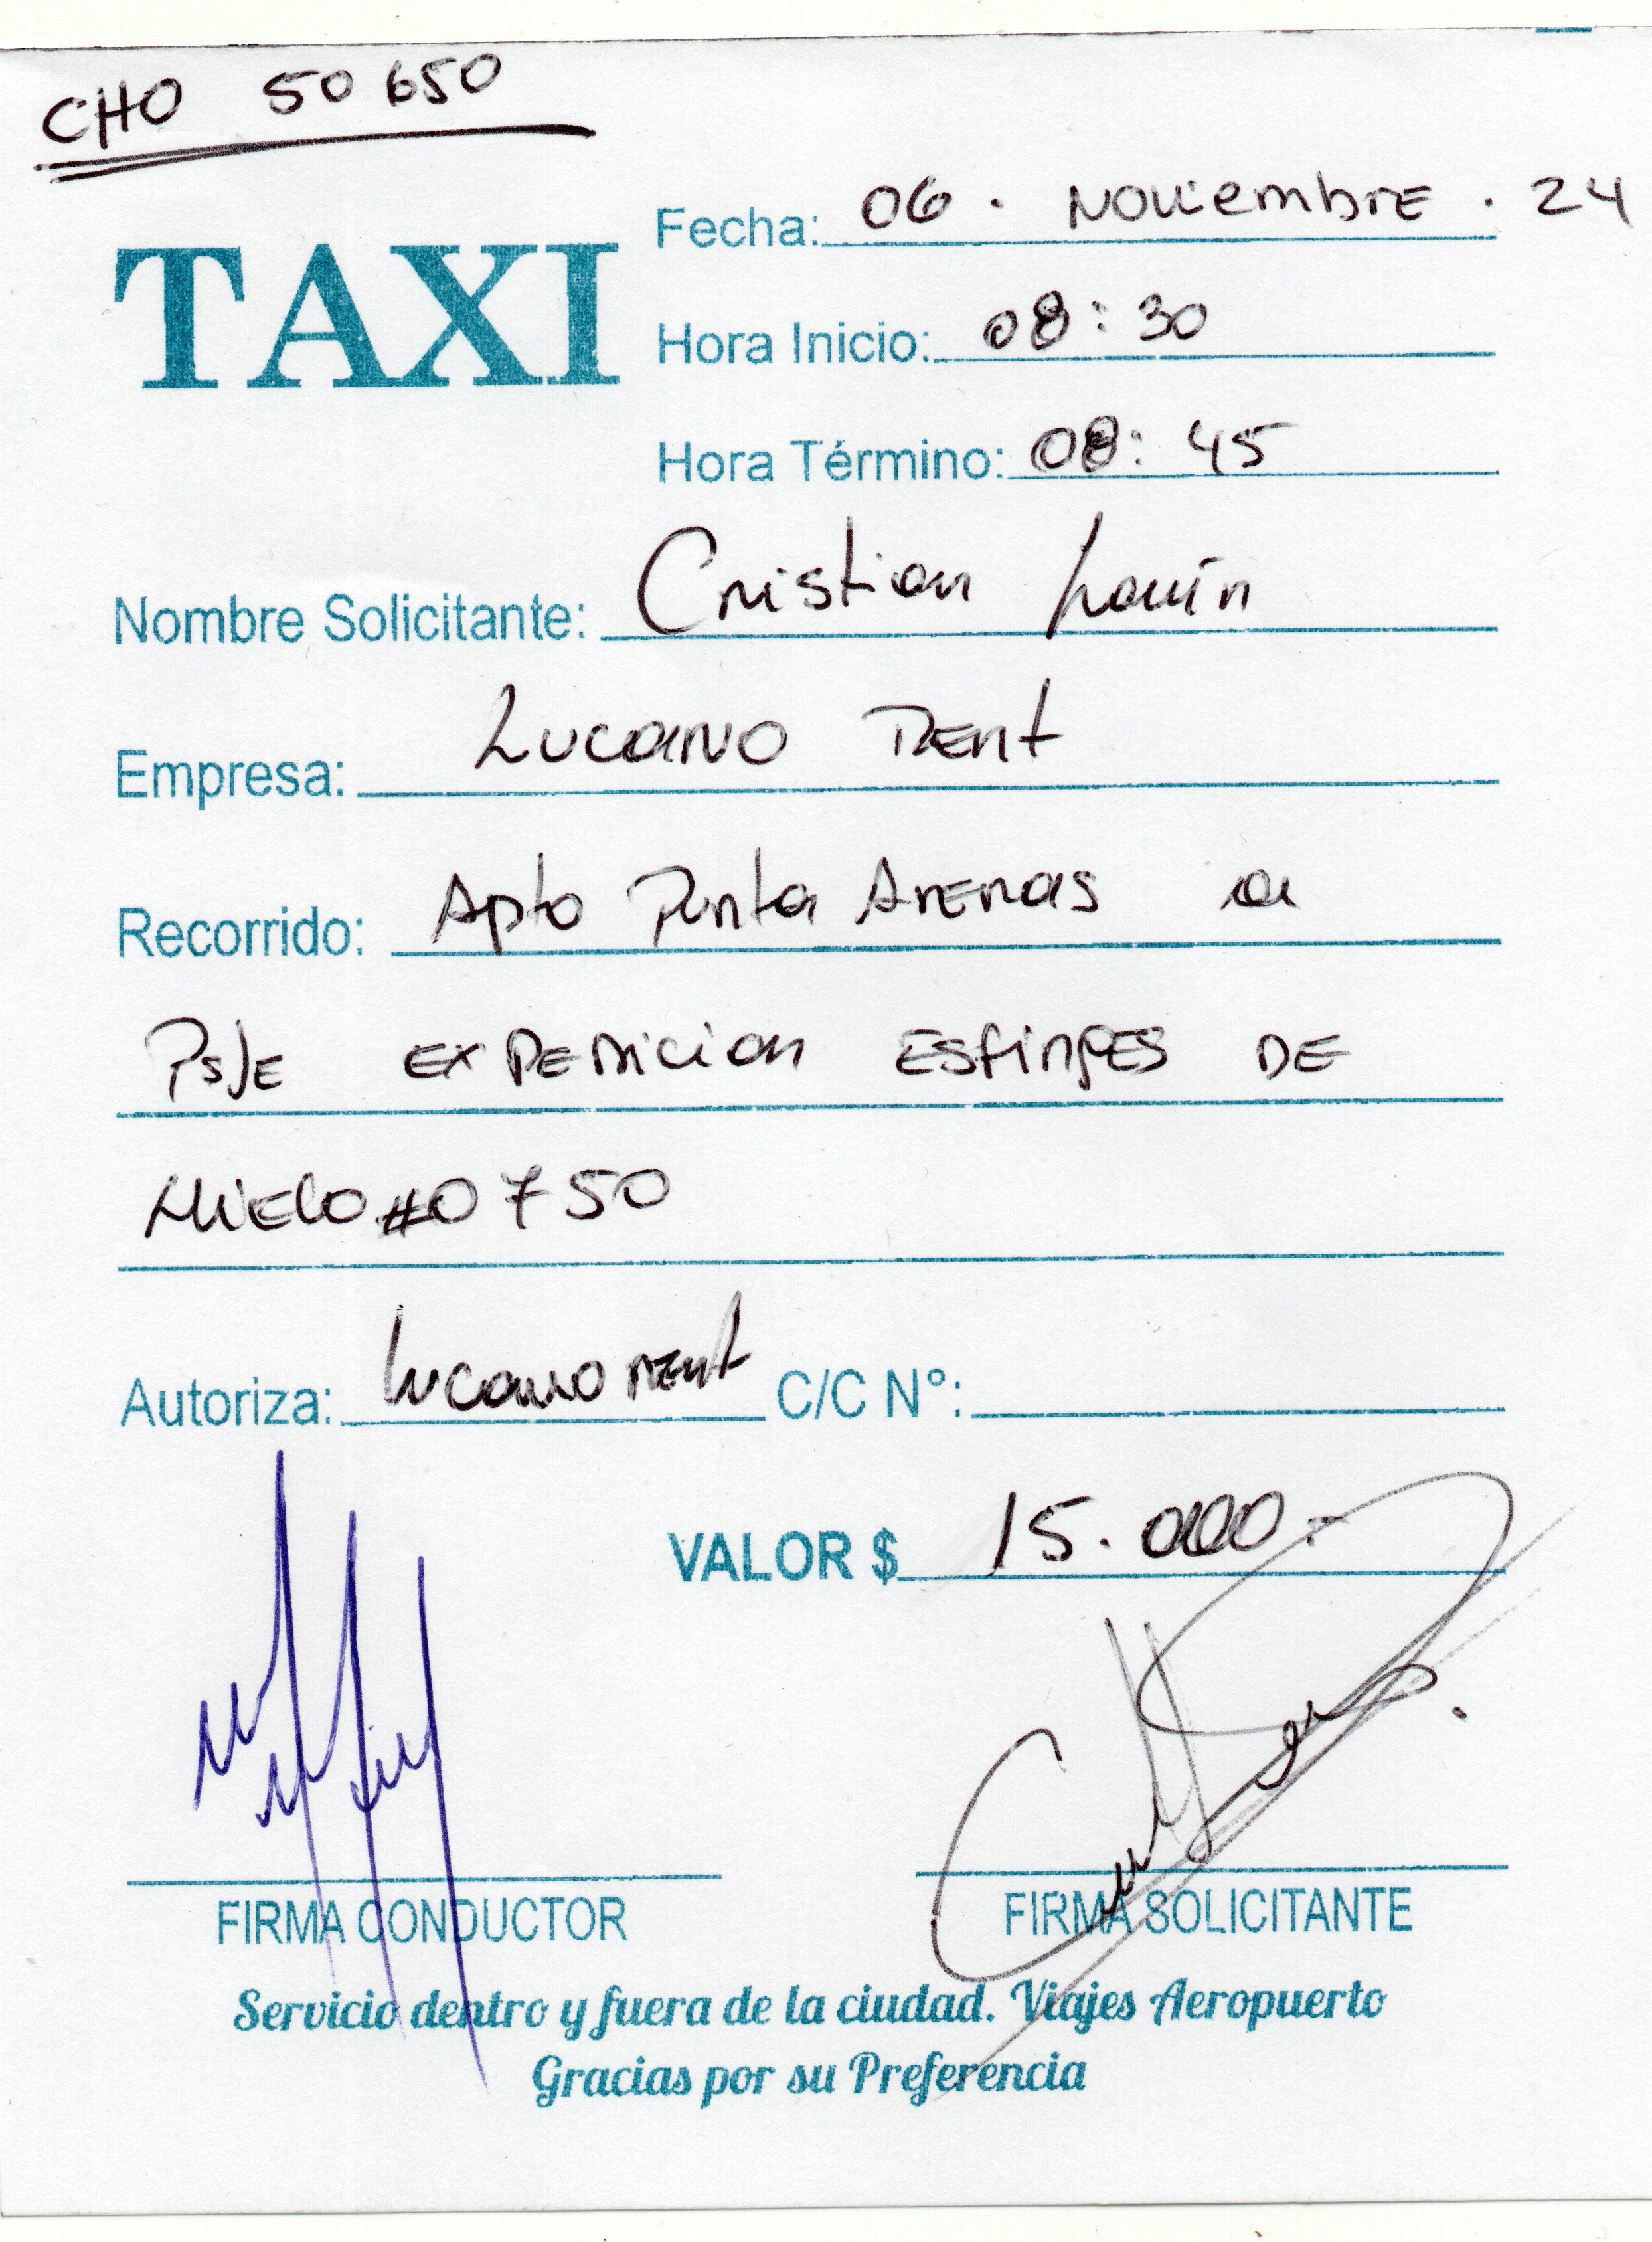 CHO 50 650
TAXI
Fecha: 06 . Noviembre . 24
Hora Inicio: 08:30
Hora Término: 08:45
Nombre Solicitante: Cristian
Empresa: Lucano Rent
Recorrido: Apto Punta Arenas a
PsJe Expedicion Esfinges DE
Hielo #0750
Autoriza: Lucano Rent C/C N°:
VALOR $ 15.000.-
FIRMA CONDUCTOR FIRMA SOLICITANTE
Servicio dentro y fuera de la ciudad. Viajes Aeropuerto
Gracias por su Preferencia